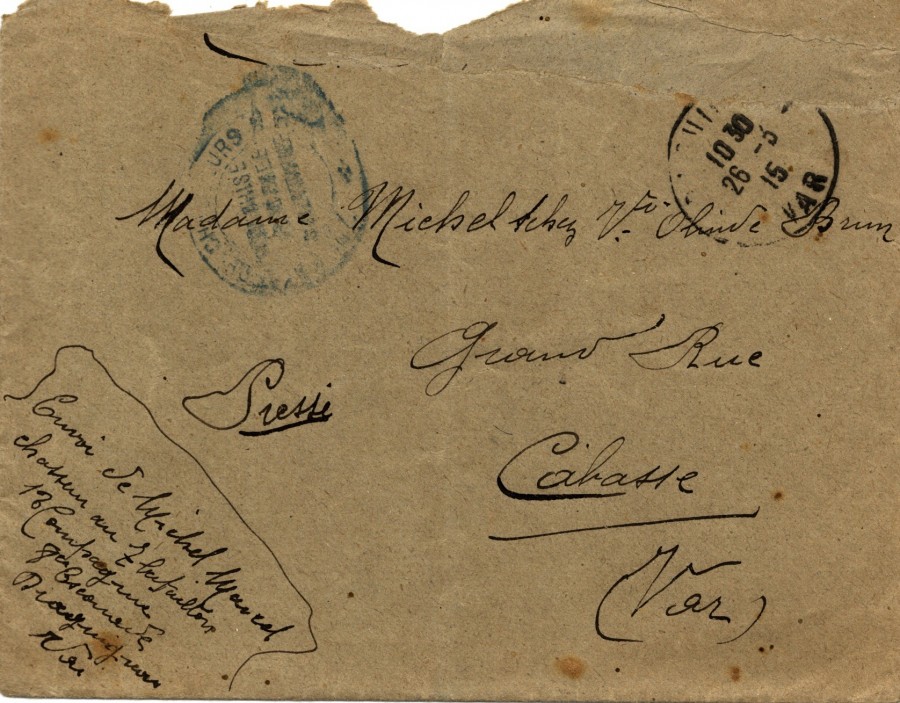 10 30
26 - 3
15
VAR
URS
Madame Michel chez Vve Olinde Brun
Grand Rue
Pressé
Cabasse
(Var)
Envoi de Michel Marcel
chasseur au 7 bataillon
12 Compagnie
Draguignan
Var